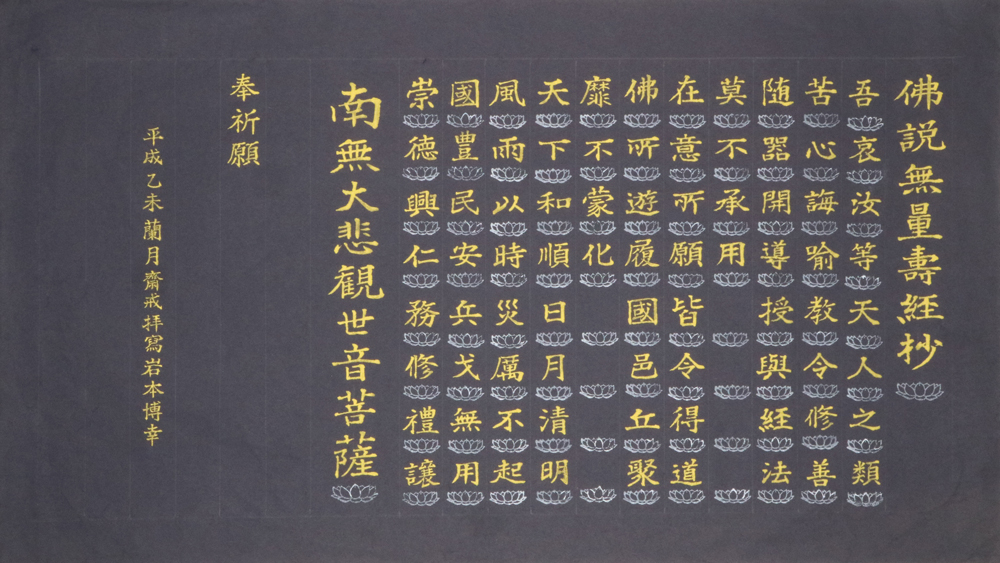 佛説無量壽経抄
吾哀汝等天人之類
苦心誨喩教令修善
随器開導授與経法
莫不承用
在意所願皆令得道
佛所遊履國邑丘聚
靡不蒙化
天下和順日月清明
風雨以時災厲不起
國豊民安兵戈無用
崇徳興仁務修禮讓
南無大悲観世音菩薩
奉祈願
平成乙未蘭月齋戒拝寫岩本博幸